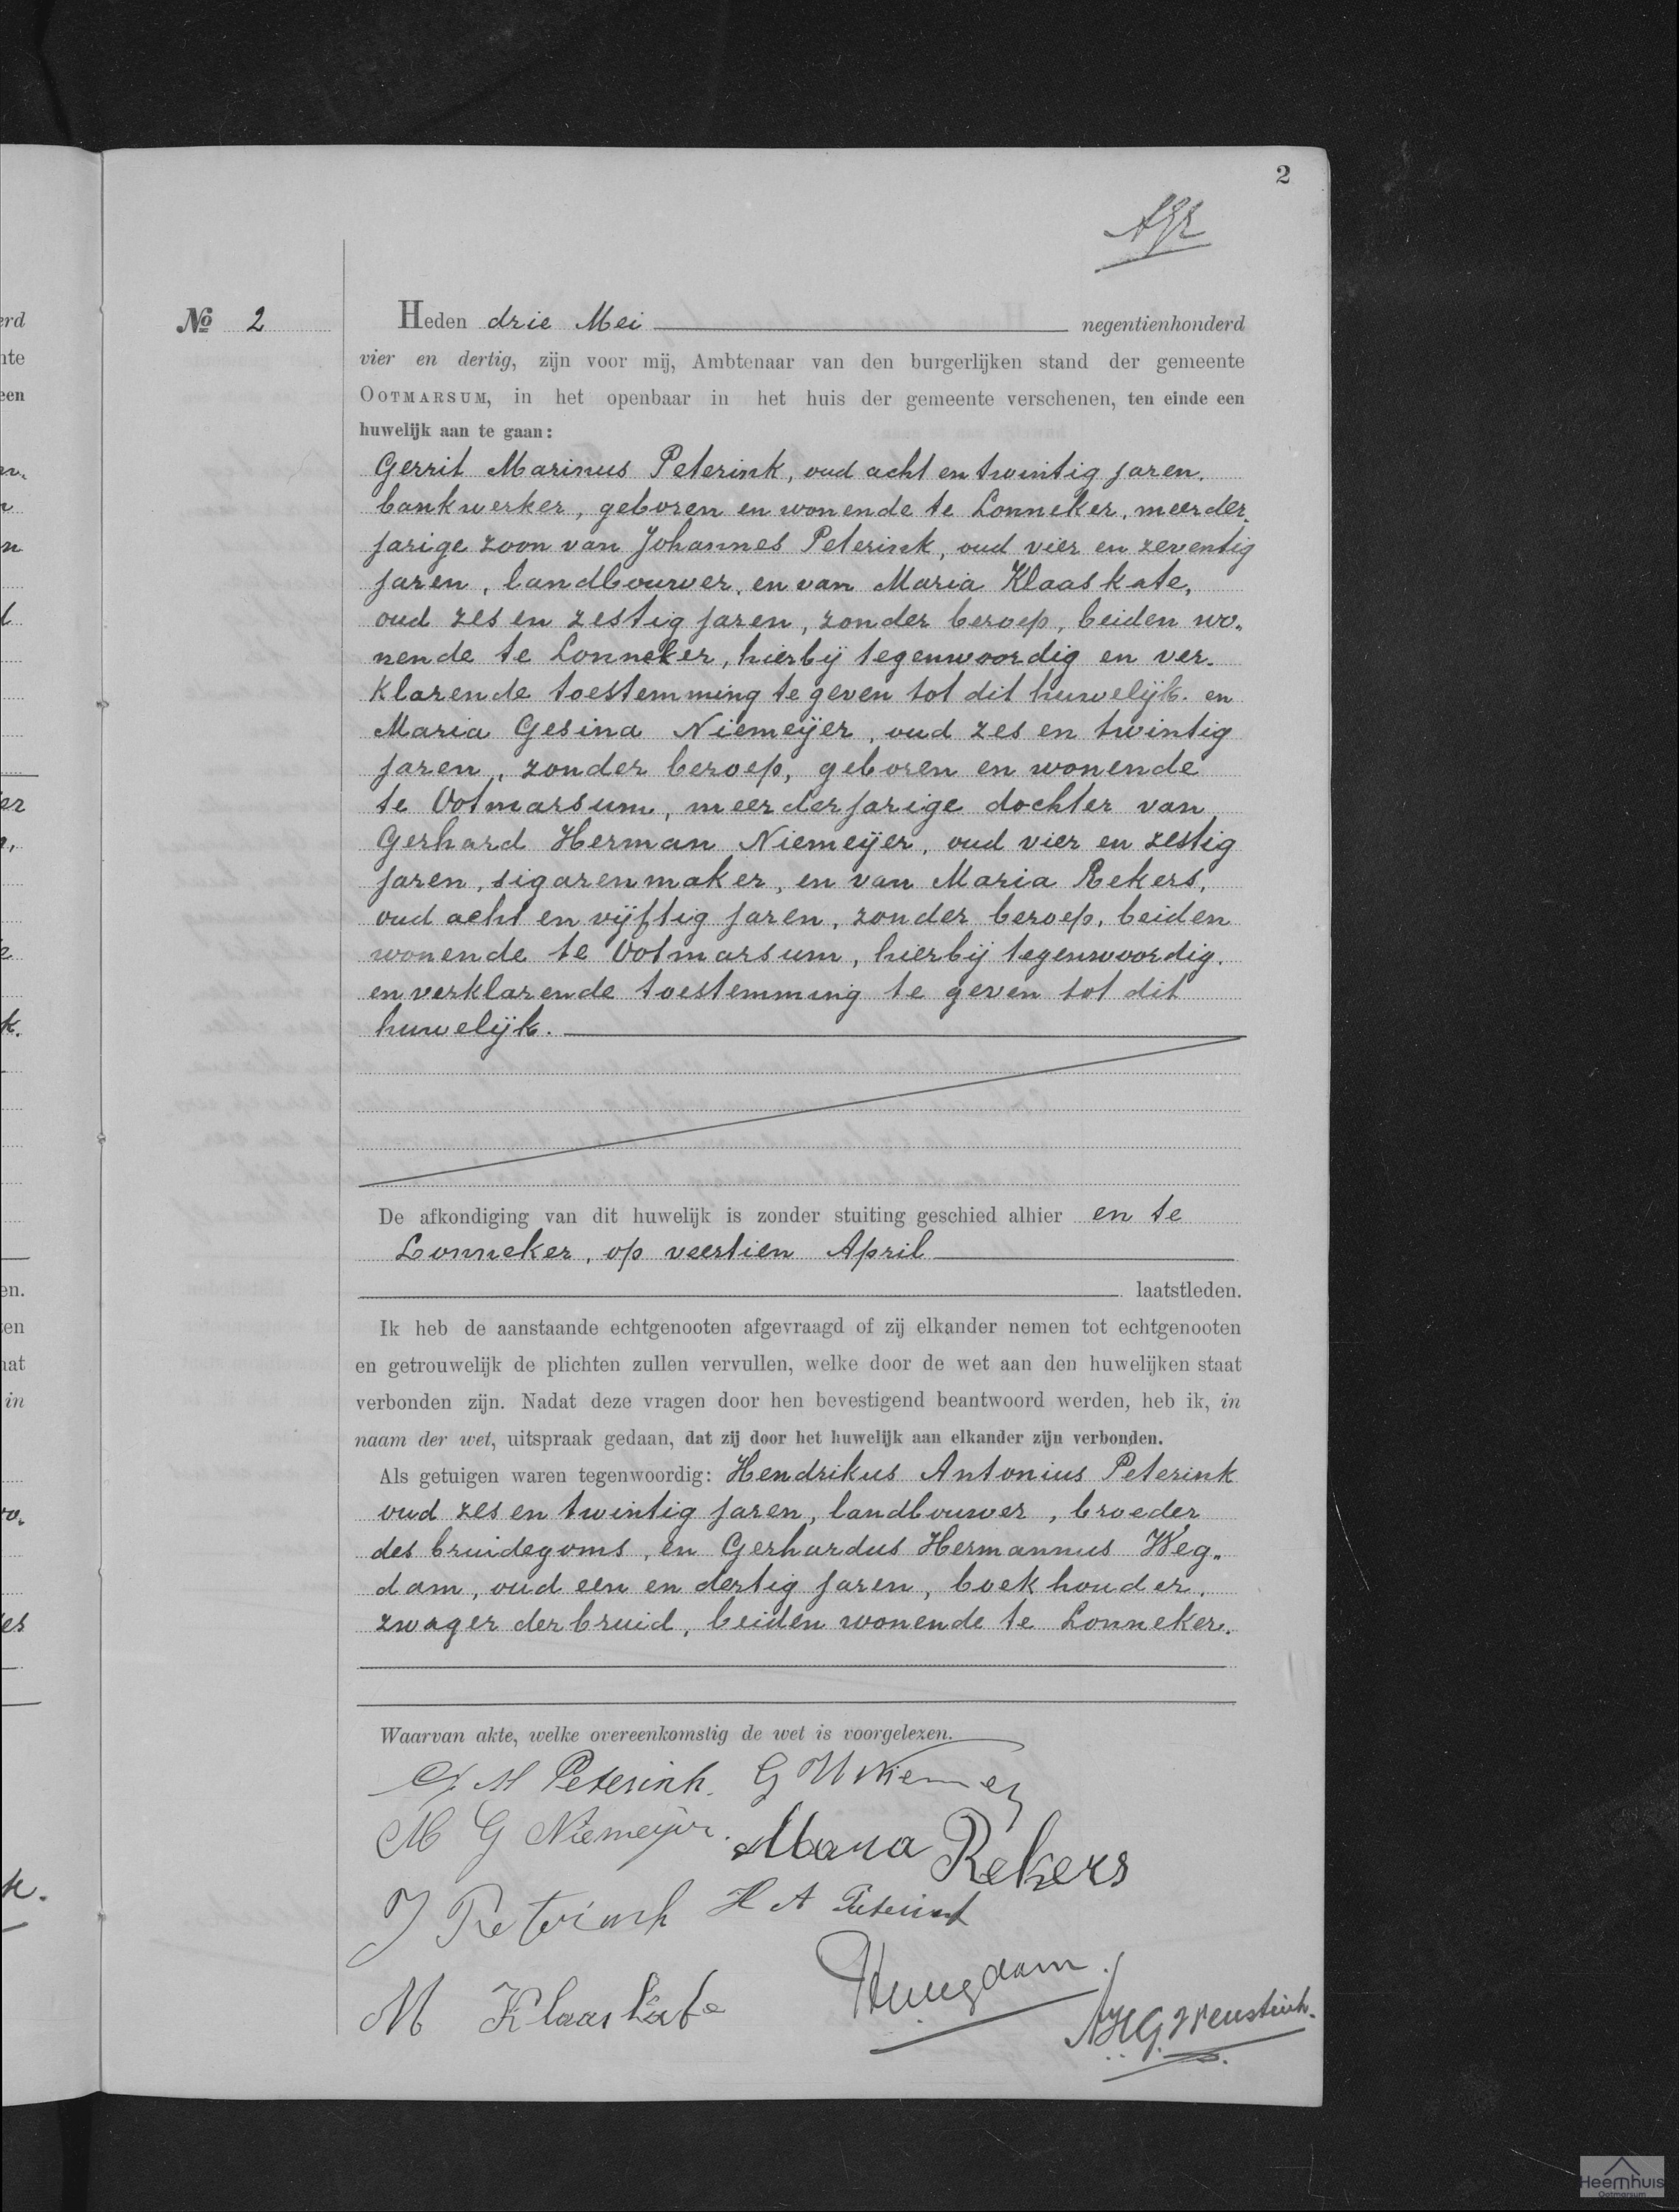 2
№ 2
Heden drie Mei negentienhonderd
vier en dertig, zijn voor mij, Ambtenaar van den burgerlijken stand der gemeente
OOTMARSUM, in het openbaar in het huis der gemeente verschenen, ten einde een
huwelijk aan te gaan:
Gerrit Marinus Peterink, oud acht en twintig jaren.
bankwerker, geboren en wonende te Lonneker, meerder„
jarige zoon van Johannes Peterink, oud vier en zeventig
jaren, landbouwer, en van Maria Klaaskate,
oud zes en zestig jaren, zonder beroep, beiden wo„
nende te Lonneker, hierbij tegenwoordig en ver„
klarende toestemming te geven tot dit huwelijk. en
Maria Gesina Niemeijer, oud zes en twintig
jaren, zonder beroep, geboren en wonende
te Ootmarsum, meerderjarige dochter van
Gerhard Herman Niemeijer, oud vier en zestig
jaren, sigarenmaker, en van Maria Rekers,
oud acht en vijftig jaren, zonder beroep, beiden
wonende te Ootmarsum, hierbij tegenwoordig.
en verklarende toestemming te geven tot dit
huwelijk.
De afkondiging van dit huwelijk is zonder stuiting geschied alhier en te
Lonneker, op veertien April
laatstleden.
Ik heb de aanstaande echtgenooten afgevraagd of zij elkander nemen tot echtgenooten
en getrouwelijk de plichten zullen vervullen, welke door de wet aan den huwelijken staat
verbonden zijn. Nadat deze vragen door hen bevestigend beantwoord werden, heb ik, in
naam der wet, uitspraak gedaan, dat zij door het huwelijk aan elkander zijn verbonden.
Als getuigen waren tegenwoordig: Hendrikus Antonius Peterink
oud zes en twintig jaren, landbouwer, broeder
des bruidegoms, en Gerhardus Hermannus Weg„
dam, oud een en dertig jaren, boekhouder,
zwager der bruid, beiden wonende te Lonneker.
Waarvan akte, welke overeenkomstig de wet is voorgelezen.
G M Peterink. G H Niemeij
M G Niemeijer. Maria Rekers
J Peterink H A Peterink
M Klaaskate
Heemhuis
Ootmarsum